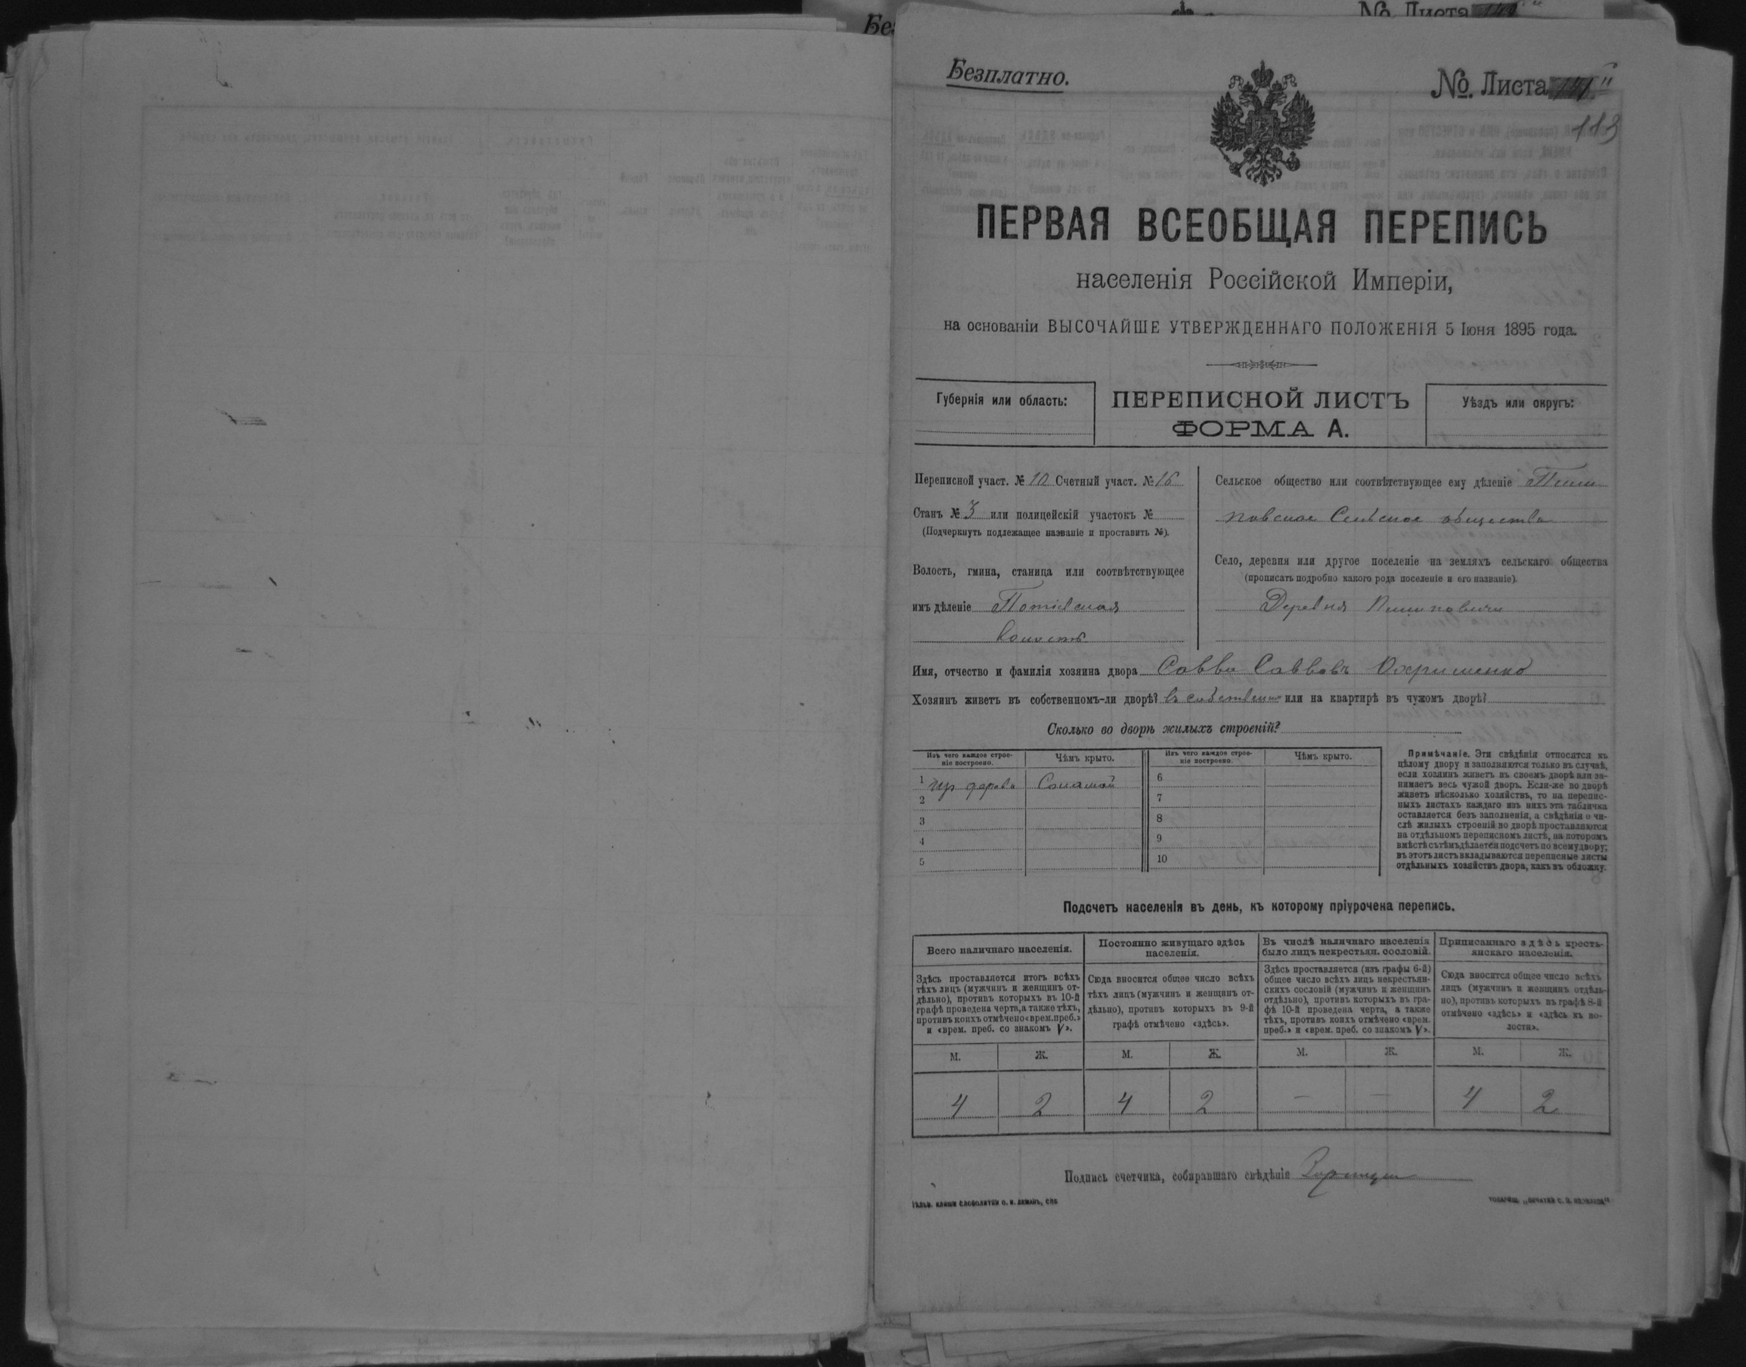 Безплатно.
№ Листа
183
ПЕРВАЯ ВСЕОБЩАЯ ПЕРЕПИСЬ
населенія Россійской Имперіи,
на основаніи ВЫСОЧАЙШЕ УТВЕРЖДЕННАГО ПОЛОЖЕНІЯ 5 Іюня 1895 года.
Губернія или область:
ПЕРЕПИСНОЙ ЛИСТЪ
ФОРМА А.
Уѣздъ или округъ:
Переписной участ. № 10 Счетный участ. № 16
Станъ № 3 или полицейскій участокъ №
(Подчеркнуть подлежащее названіе и проставить №).
Волость, гмина, станица или соотвѣтствующее
имъ дѣленіе Потіевская
Волость
Сельское общество или соотвѣтствующее ему дѣленіе
Сельское общество
Село, деревня или другое поселеніе на земляхъ сельскаго общества
(прописать подробно какого рода поселеніе и его названіе).
Деревня
Имя, отчество и фамилія хозяина двора Савва Саввовъ
Хозяинъ живетъ въ собственномъ-ли дворѣ? въ собственно или на квартирѣ въ чужомъ дворѣ?
Сколько во дворѣ жилыхъ строеній?
Изъ чего каждое строеніе построено.
Чѣмъ крыто.
Изъ чего каждое строеніе построено.
Чѣмъ крыто.
1 дерева Соломой
2
3
4
5
6
7
8
9
10
Примѣчаніе. Эти свѣдѣнія относятся къ
цѣлому двору и заполняются только въ случаѣ,
если хозяинъ живетъ въ своемъ дворѣ или за-
нимаетъ весь чужой дворъ. Если-же во дворѣ
живетъ нѣсколько хозяйствъ, то на перепис-
ныхъ листахъ каждаго изъ нихъ эта табличка
оставляется безъ заполненія, а свѣдѣнія о чи-
слѣ жилыхъ строеній во дворѣ проставляются
на отдѣльномъ переписномъ листѣ, на которомъ
вмѣстѣ съ тѣмъ дѣлается подсчетъ по всему двору;
въ этотъ листъ вкладываются переписные листы
отдѣльныхъ хозяйствъ двора, какъ въ обложку.
Подсчетъ населенія въ день, къ которому пріурочена перепись.
Всего наличнаго населенія.
Здѣсь проставляется итогъ всѣхъ
тѣхъ лицъ (мужчинъ и женщинъ от-
дѣльно), противъ которыхъ въ 10-й
графѣ проведена черта, а также тѣхъ,
противъ коихъ отмѣчено «врем. преб.»
и «врем. преб. со знакомъ V».
Постоянно живущаго здѣсь
населенія.
Сюда вносится общее число всѣхъ
тѣхъ лицъ (мужчинъ и женщинъ от-
дѣльно), противъ которыхъ въ 9-й
графѣ отмѣчено «здѣсь».
Въ числѣ наличнаго населенія
было лицъ некрестьян. сословій.
Здѣсь проставляется (изъ графы 6-й)
общее число всѣхъ лицъ некрестьян-
скихъ сословій (мужчинъ и женщинъ
отдѣльно), противъ которыхъ въ гра-
фѣ 10-й проведена черта, а также
тѣхъ, противъ коихъ отмѣчено «врем.
преб.» и «врем. преб. со знакомъ V».
Приписаннаго здѣсь кресть-
янскаго населенія.
Сюда вносится общее число всѣхъ
лицъ (мужчинъ и женщинъ отдѣль-
но), противъ которыхъ въ графѣ 8-й
отмѣчено «здѣсь» и «здѣсь къ во-
лости».
М. Ж. М. Ж. М. Ж. М. Ж.
4 2 4 2 — — 4 2
Подпись счетчика, собиравшаго свѣдѣнія